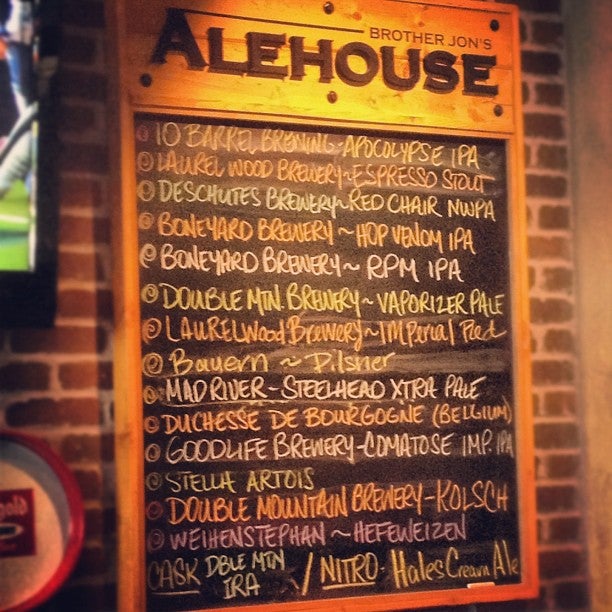 BROTHER JON'S
ALEHOUSE
10 BARREL BREWING - APOCOLYPSE IPA
LAUREL WOOD BREWERY ~ ESPRESSO STOUT
DESCHUTES BREWERY ~ RED CHAIR NWPA
BONEYARD BREWERY ~ HOP VENOM IPA
BONEYARD BREWERY ~ RPM IPA
DOUBLE MTN. BREWERY ~ VAPORIZER PALE
LAURELWood BREWERY ~ IMPerial Red
Bayern ~ Pilsner
MAD RIVER - STEELHEAD XTRA PALE
DUCHESSE DE BOURGOGNE (BELGIUM)
GOODLIFE BREWERY - COMATOSE IMP. IPA
STELLA ARTOIS
DOUBLE MOUNTAIN BREWERY - KOLSCH
WEIHENSTEPHAN ~ HEFEWEIZEN
CASK DBLE MTN IRA / NITRO - Hales Cream Ale